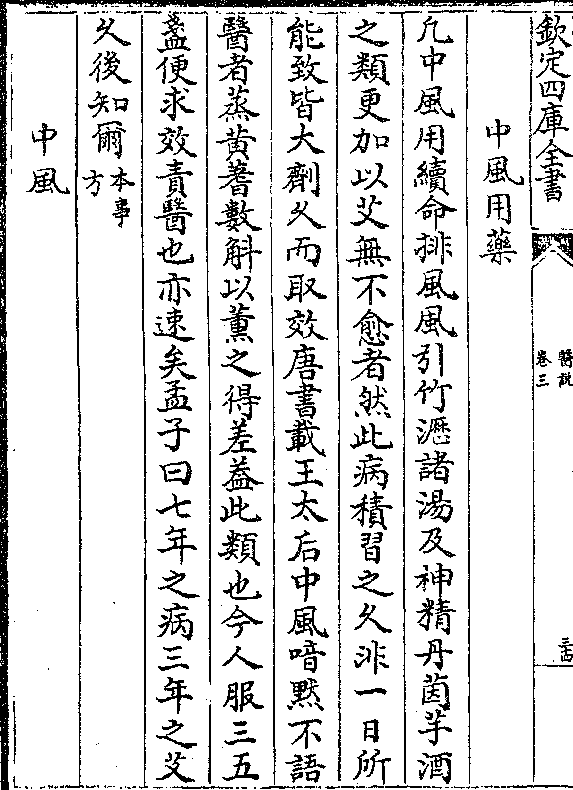 欽定四庫全書
醫說
卷三
三古
中風用藥
凡中風用續命排風風引竹瀝諸湯及神精丹茵芋酒
之類更加以艾無不愈者然此病積習之久非一日所
能致皆大劑久而取效唐書載王太后中風喑默不語
醫者蒸黄蓍數斛以薰之得差葢此類也今人服三五
盞便求效責醫也亦速矣孟子曰七年之病三年之艾
久後知爾本事方
中風